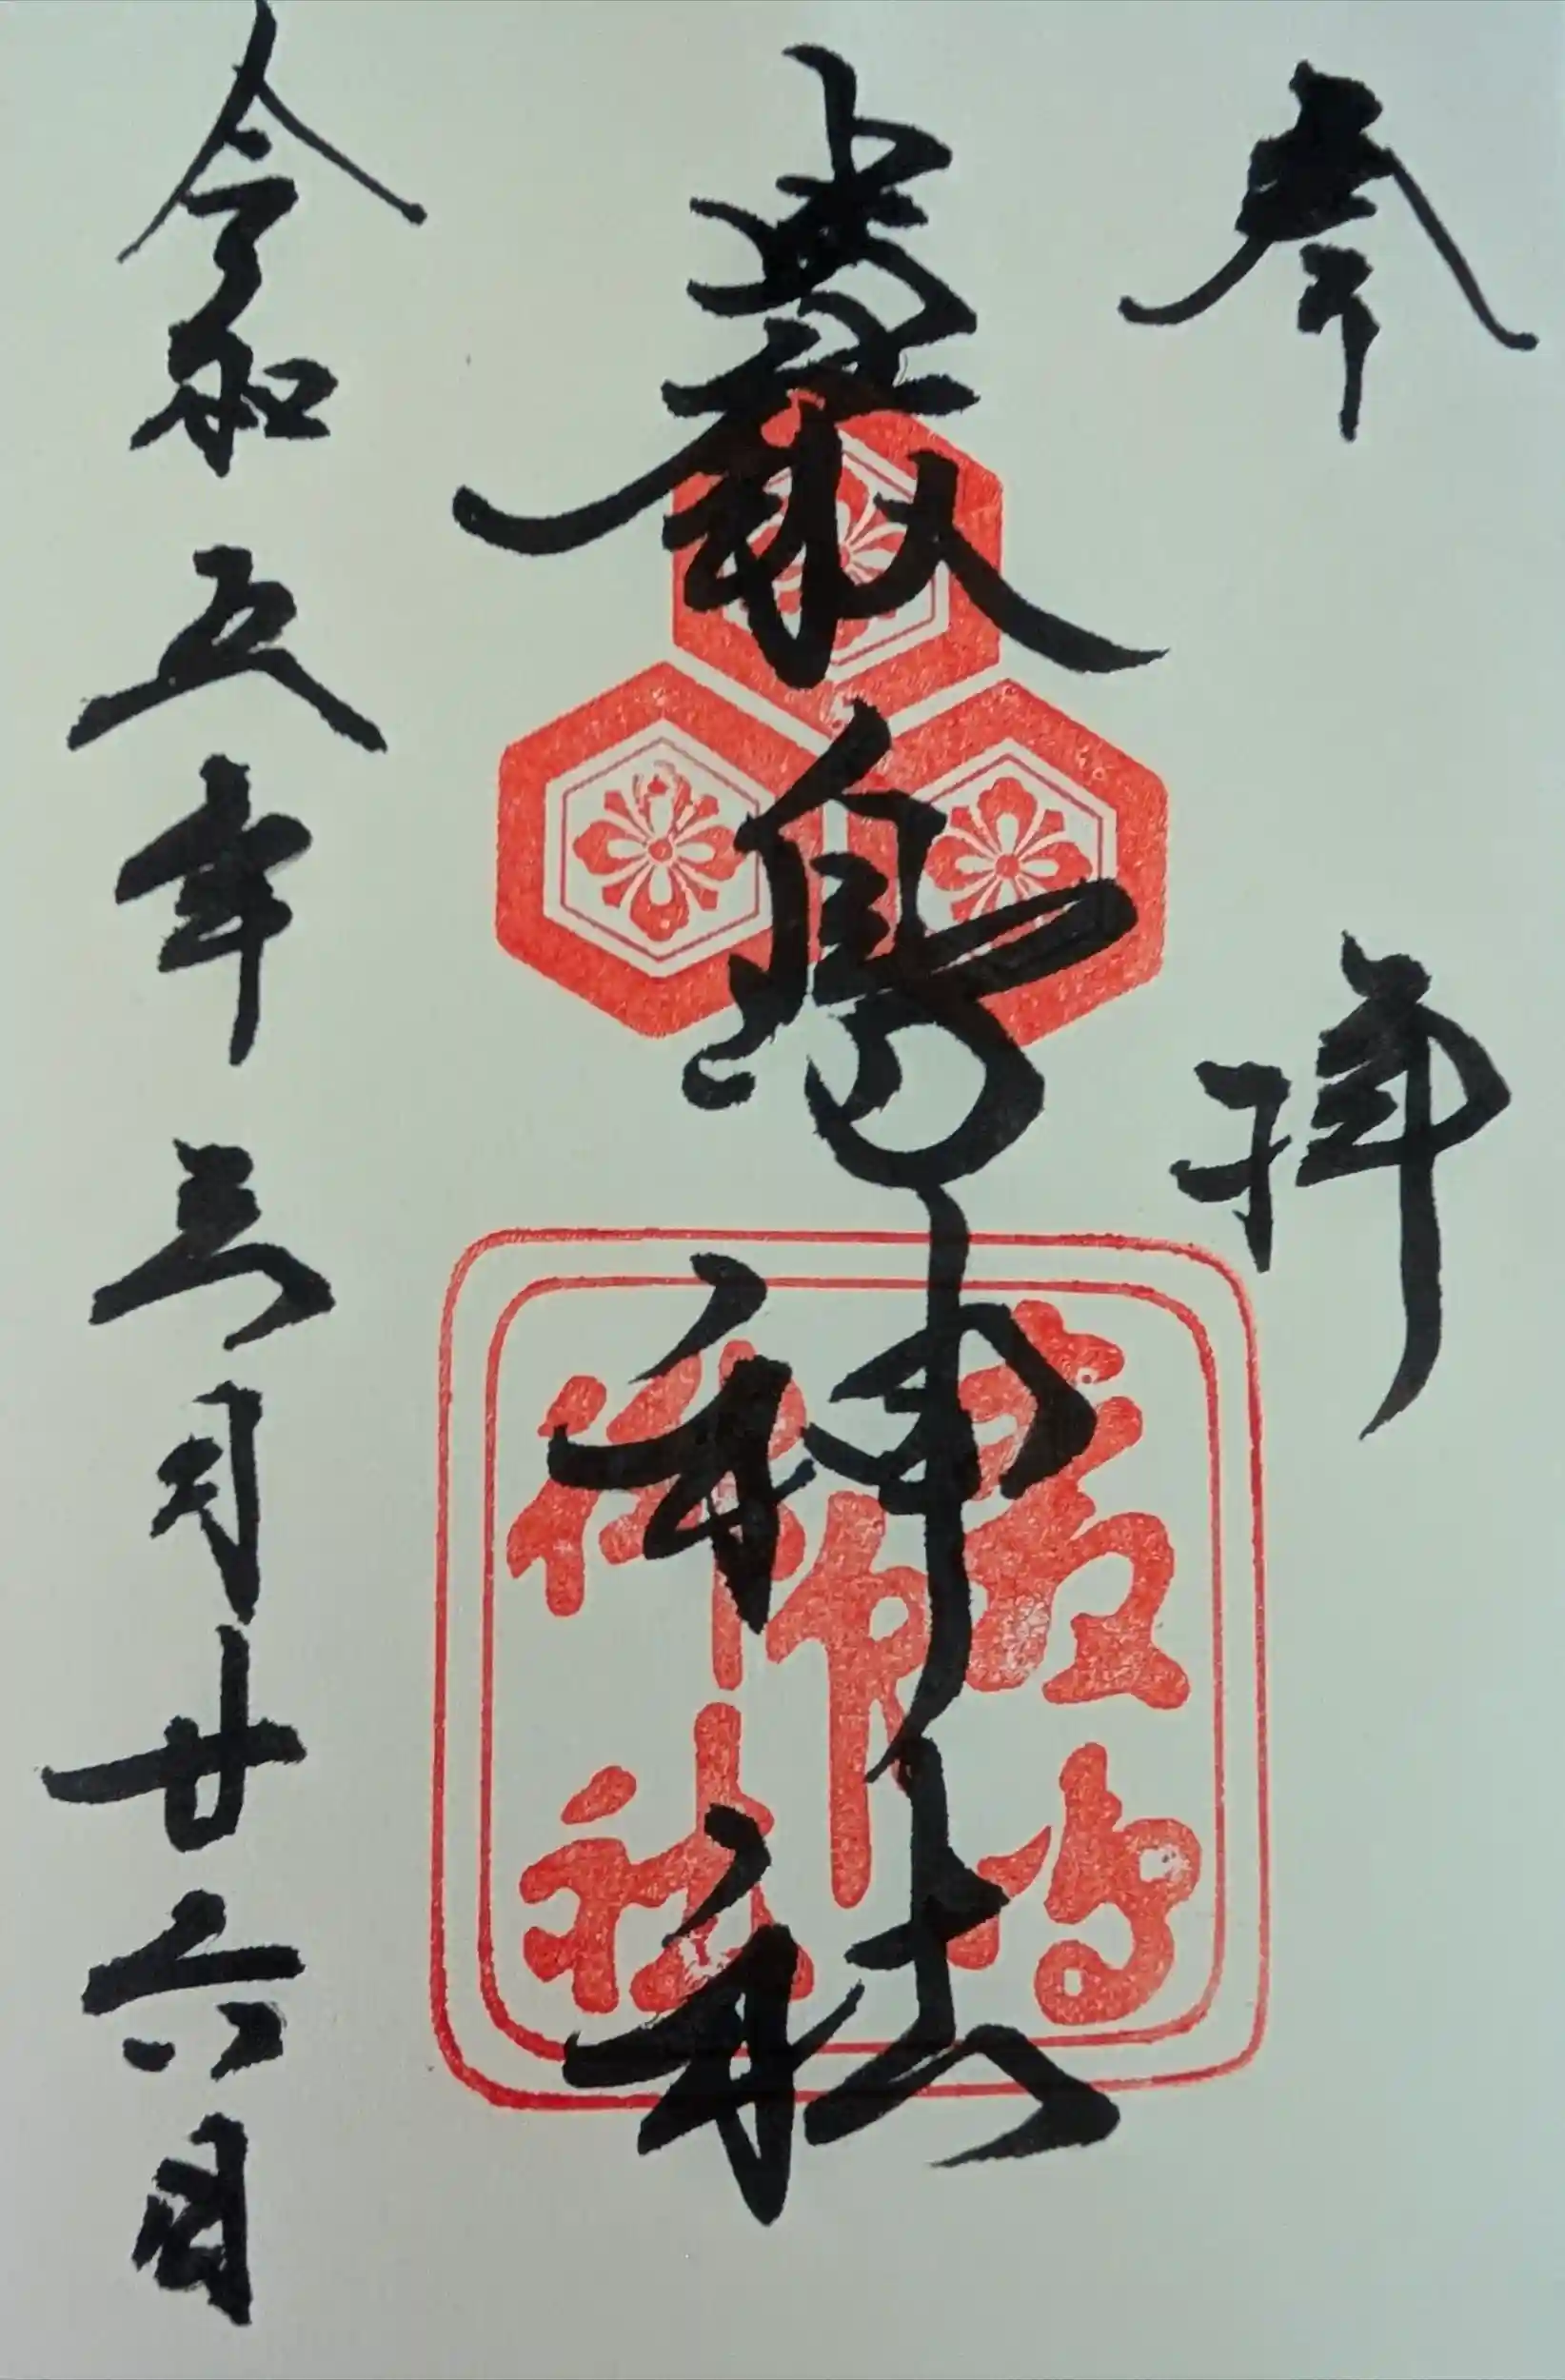 奉拝
嚴島神社
令和五年三月廿六日
嚴島
神社